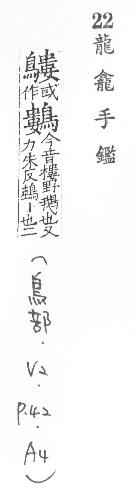 22 龍龕手鑑
鷜或作鷜今音樓野鵝也又力朱反鷜䳕也二
(鳥部.V2.P.42.A4)